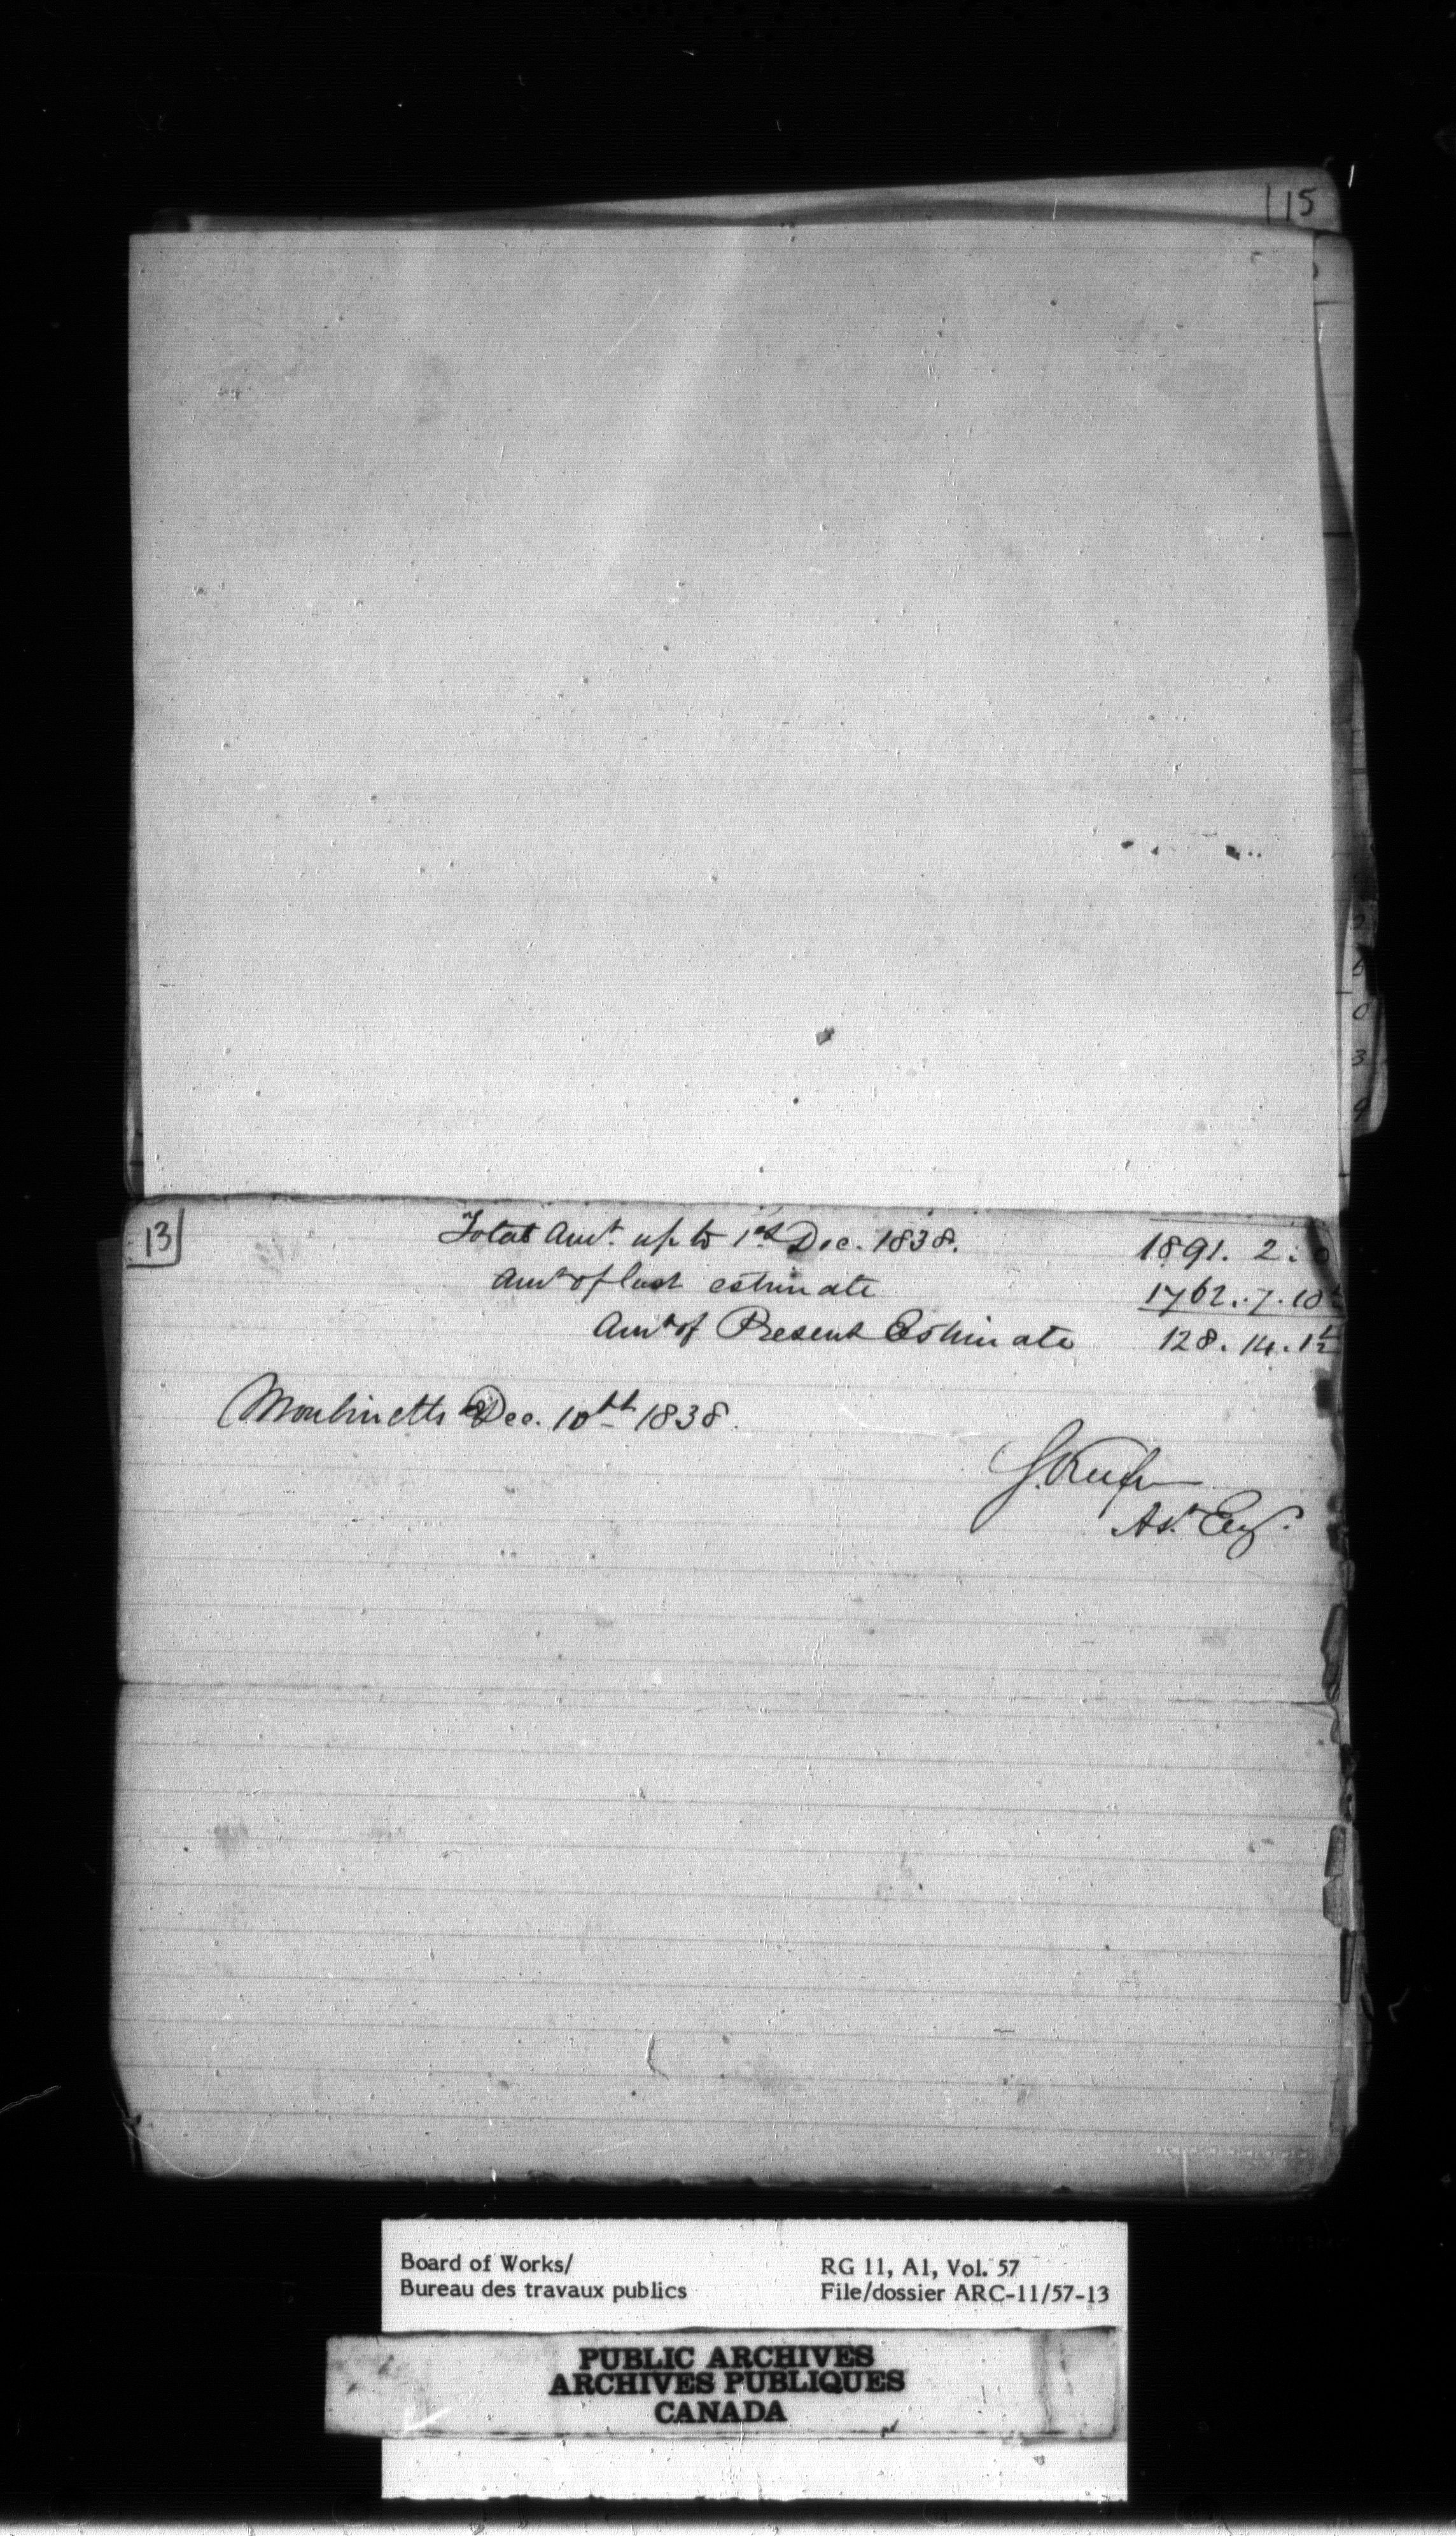 115
13
Total Amt. up to 1st Dec. 1838. 1891. 2. 0
Amt of last estimate 1762. 7. 10½
Amt of Present Estimate 128. 14. 1½
Moulinette Dec. 10th 1838.
S. Keefer
Ast. Eng.
Board of Works/ RG 11, A1, Vol. 57
Bureau des travaux publics File/dossier ARC-11/57-13
PUBLIC ARCHIVES
ARCHIVES PUBLIQUES
CANADA